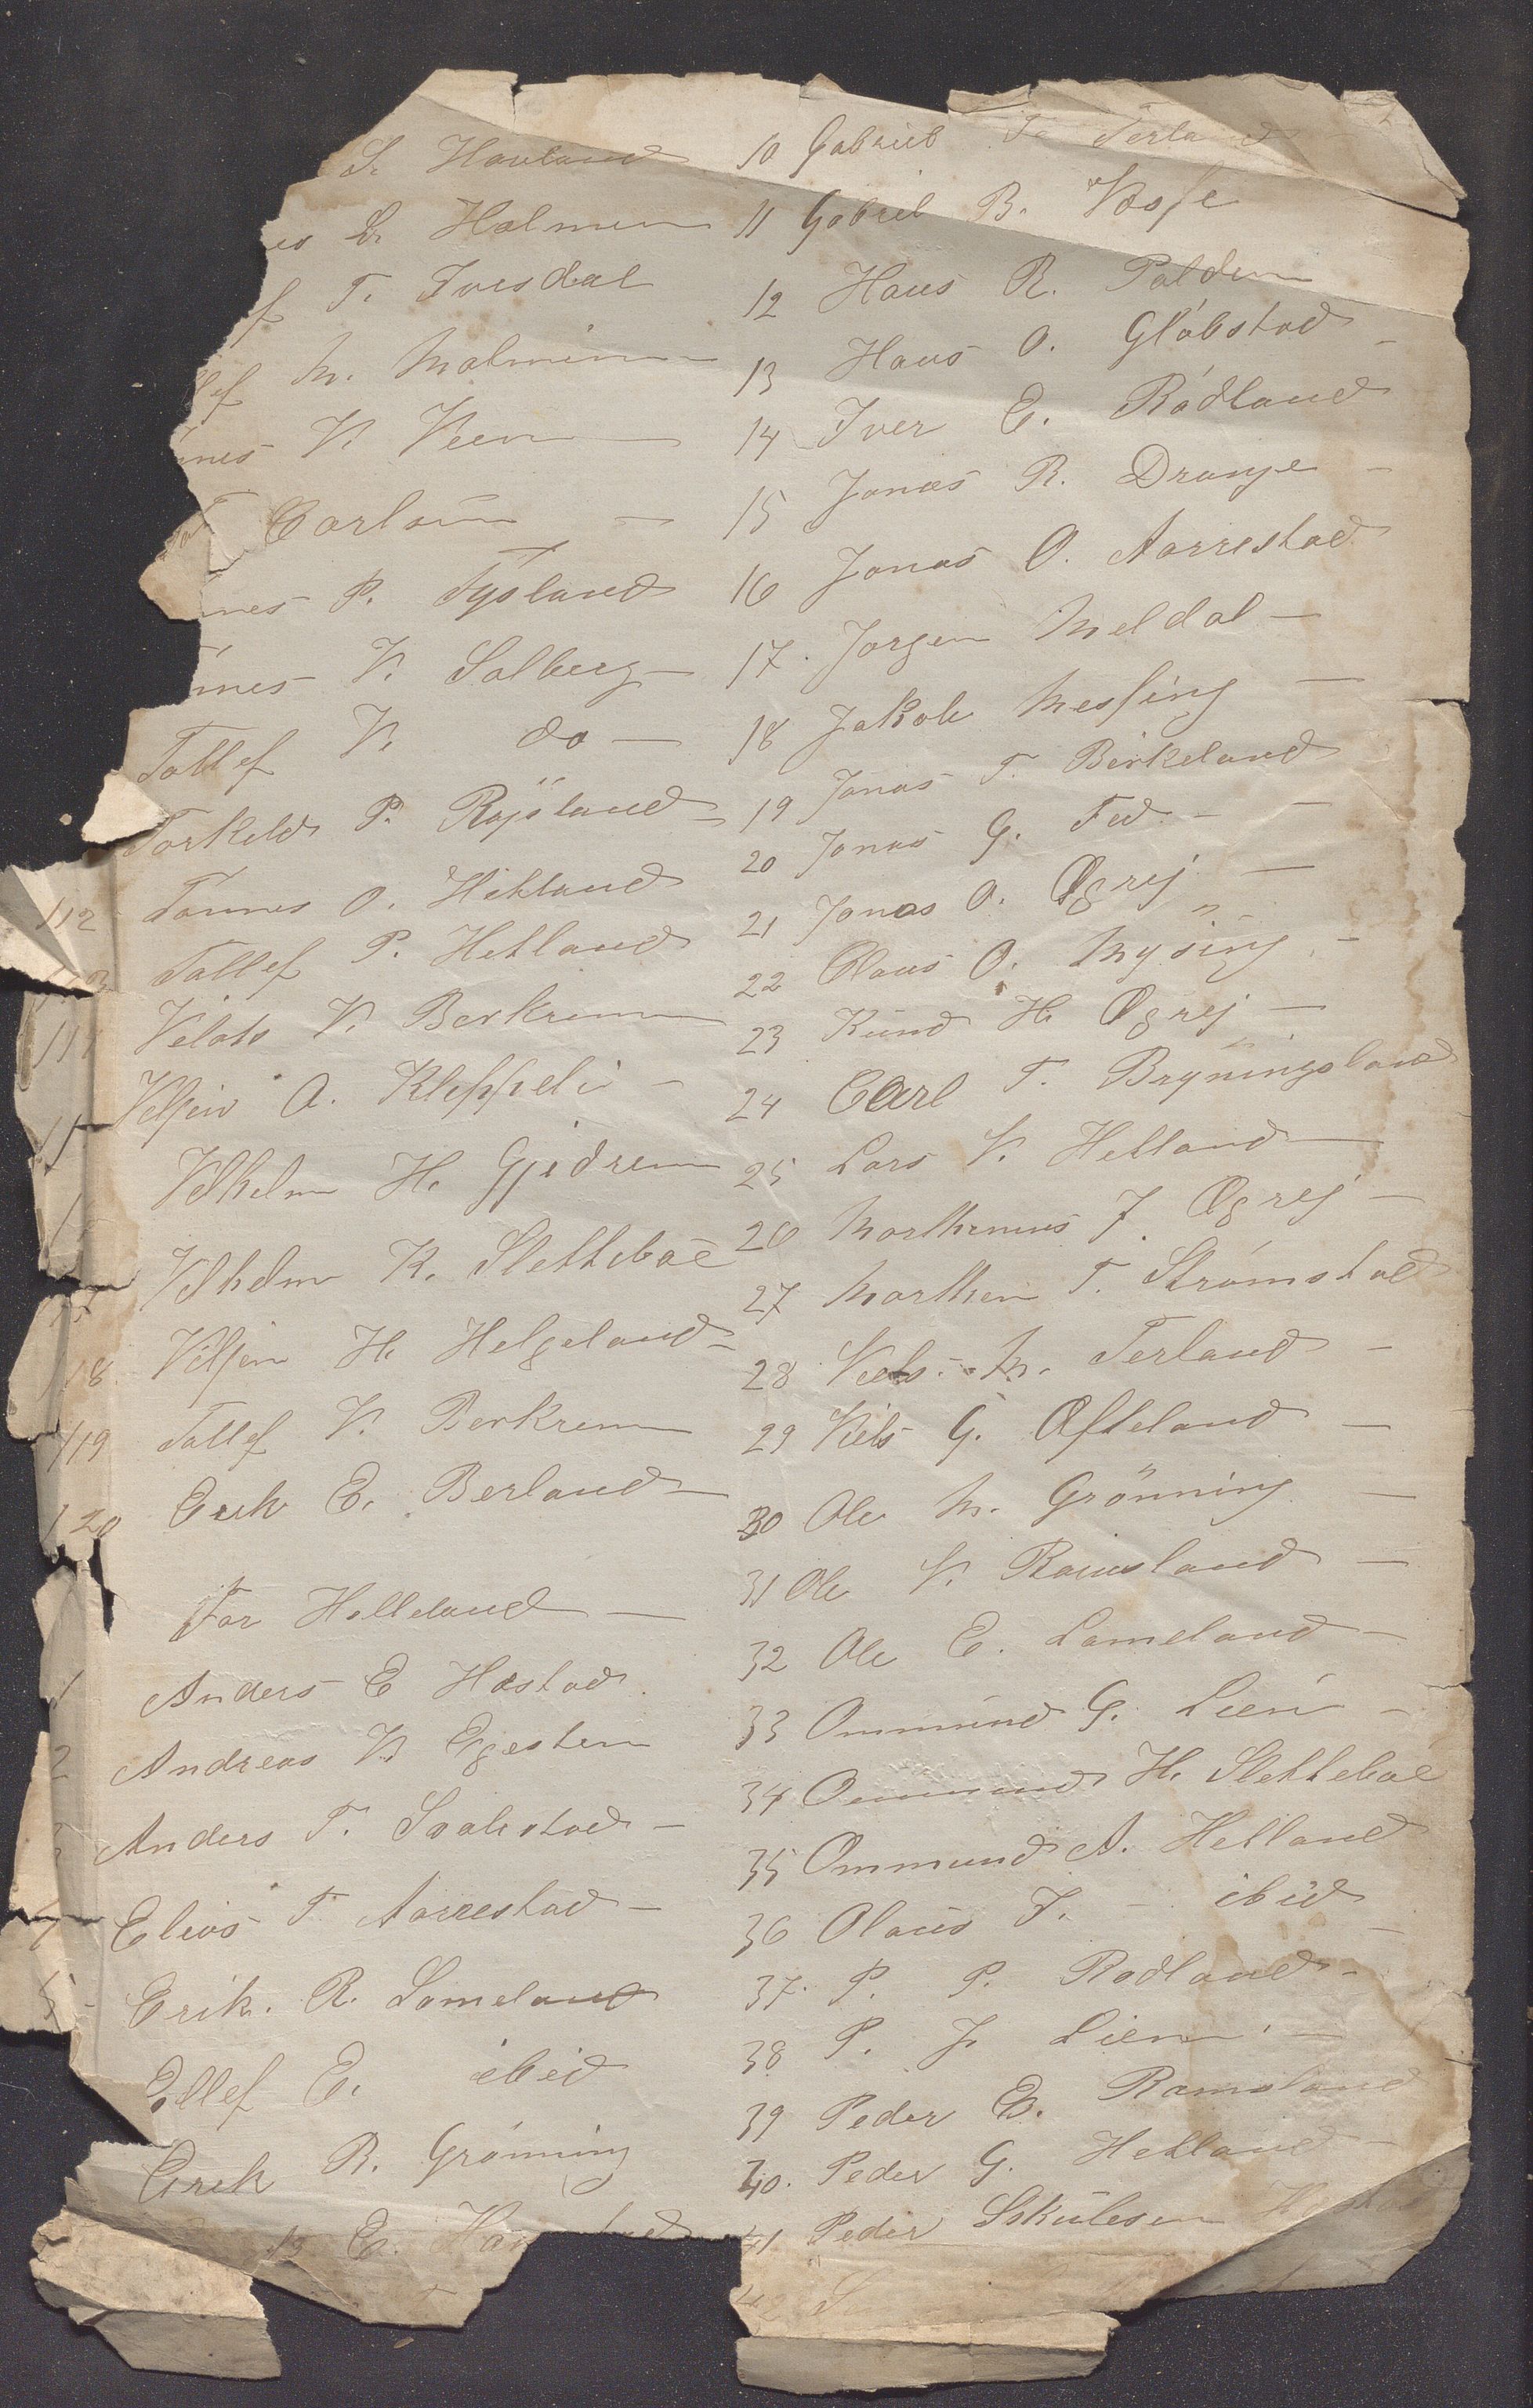 S. Hauland
es L. Holmen
f T. Ivesdal
lef M. Malmin
nnes V. Veen
Carlsen –
nnes P. Tysland
nnes V. Solberg –
Tollef V. do –
Torkild P. Røjsland –
112 Tønnes O. Hetland
Tollef P. Hetland
Berkrem
A. Kleppeli –
Vilhelm H. Gjedrem
Vilhelm K. Slettebøe
18 H. Helgeland –
119 Tollef V. Berkrem
120 Erik E. Berland –
For Helleland –
1 Anders E Hæstad
2 Andreas V. Egesten
Anders T. Svalestad –
Elias T. Aarrestad –
5 Erik. R. Lomeland
Ellef E. ibid
Erik R. Grønning
E.
10 Gabriel T. Terland
11 Gabriel B. Vasse
12 Hans R. Polden
13 Hans O. Gløbstad –
14 Iver E. Rødland
15 Jonas R. Drange –
16 Jonas O. Aarrestad
17. Jørgen Meldal –
18 Jakob Messing –
19 Jonas T. Birkeland
20 Jonas G. Fed. –
21 Jonas O. Øgrej –
22 Claus O. Mysing –
23 Knud H. Øgrej –
24 Carl T. Bryningsland
25 Lars V. Hetland
26 Morthinius J. Øgrej –
27 Morthen T. Strømstad
28 Niels. M. Terland –
29 Niels G. Øfteland –
30 Ole M. Grønning –
31 Ole V. Ramsland –
32 Ole E. Lomeland –
33 Ommund G. Lien –
34 Ommund H. Slettebøe
35 Ommund A. Hetland
36 Olaus T. – ibid
37. P. P. Rødland –
38 P. J. Lien –
39 Peder E. Ramsland
40. Peder G. Hetland –
41 Peder Skulesen Hæstad
42 S